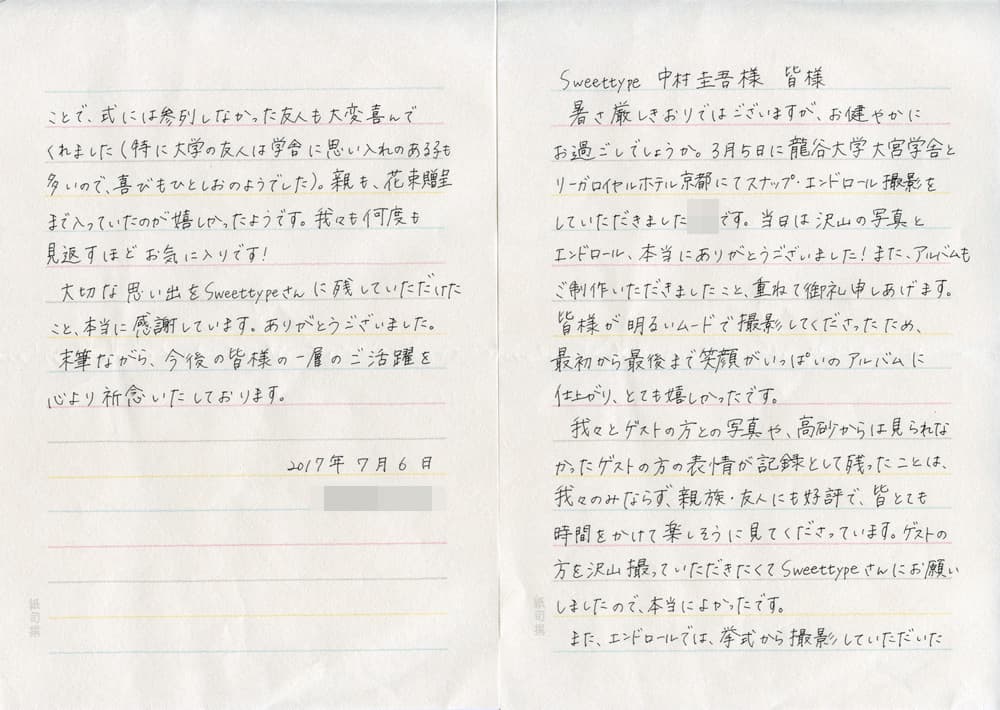 Sweettype 中村圭吾様 皆様
暑さ厳しきおりではございますが、お健やかに
お過ごしでしょうか。3月5日に龍谷大学大宮学舎と
リーガロイヤルホテル京都にてスナップ・エンドロール撮影を
していただきました です。当日は沢山の写真と
エンドロール、本当にありがとうございました!また、アルバムも
ご制作いただきましたこと、重ねて御礼申しあげます。
皆様が明るいムードで撮影してくださったため、
最初から最後まで笑顔がいっぱいのアルバムに
仕上がり、とても嬉しかったです。
我々とゲストの方との写真や、高砂からは見られな
かったゲストの方の表情が記録として残ったことは、
我々のみならず、親族・友人にも好評で、皆とても
時間をかけて楽しそうに見てくださっています。ゲストの
方を沢山撮っていただきたくてSweettypeさんにお願い
しましたので、本当によかったです。
また、エンドロールでは、挙式から撮影していただいた
ことで、式には参列しなかった友人も大変喜んで
くれました(特に大学の友人は学舎に思い入れのある子も
多いので、喜びもひとしおのようでした)。親も、花束贈呈
まで入っていたのが嬉しかったようです。我々も何度も
見返すほどお気に入りです!
大切な思い出をSweettypeさんに残していただけた
こと、本当に感謝しています。ありがとうございました。
末筆ながら、今後の皆様の一層のご活躍を
心より祈念いたしております。
2017年7月6日